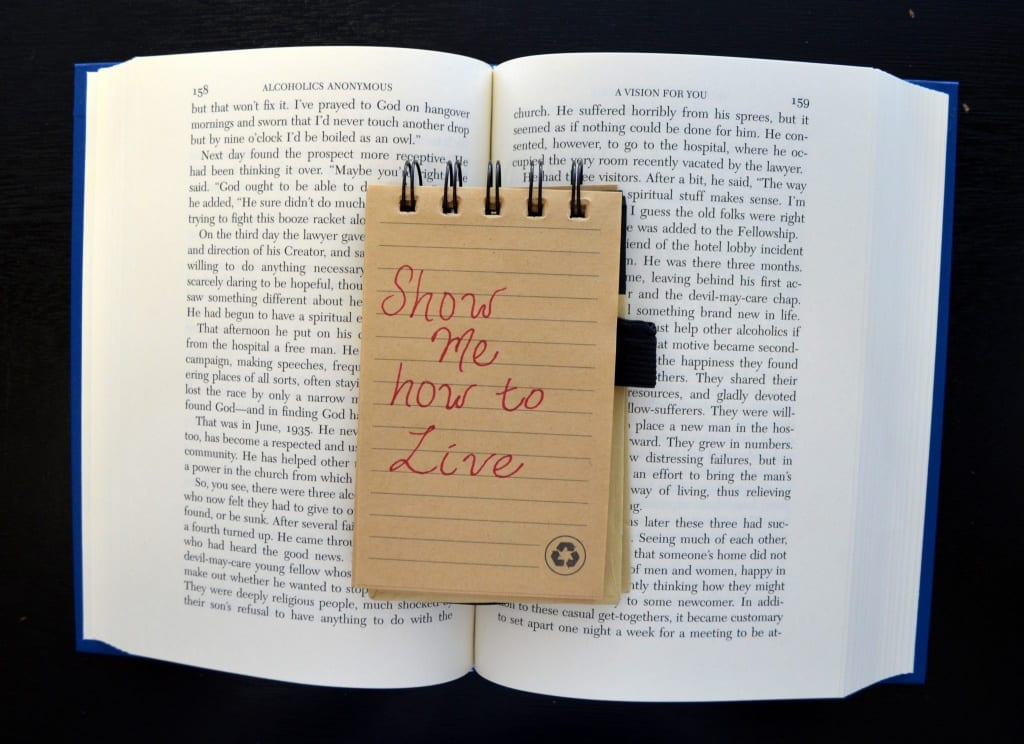 158
ALCOHOLICS ANONYMOUS
but that won't fix it. I've prayed to God on hangover
mornings and sworn that I'd never touch another drop
but by nine o'clock I'd be boiled as an owl."
Next day found the prospect more receptive. He
had been thinking it over. "Maybe you're right," he
said. "God ought to be able to d
he added, "He sure didn't do much
trying to fight this booze racket alo
On the third day the lawyer gave
and direction of his Creator, and sa
willing to do anything necessary
scarcely daring to be hopeful, thou
saw something different about he
He had begun to have a spiritual e
That afternoon he put on his c
from the hospital a free man. He
campaign, making speeches, frequ
ering places of all sorts, often stayi
lost the race by only a narrow m
found God—and in finding God ha
That was in June, 1935. He nev
too, has become a respected and us
community. He has helped other
a power in the church from which
So, you see, there were three alc
who now felt they had to give to o
found, or be sunk. After several fai
a fourth turned up. He came throu
who had heard the good news.
devil-may-care young fellow whos
make out whether he wanted to stop
They were deeply religious people, much shocked by
their son's refusal to have anything to do with the
Show
Me
how to
Live
A VISION FOR YOU
159
church. He suffered horribly from his sprees, but it
seemed as if nothing could be done for him. He con-
sented, however, to go to the hospital, where he oc-
cupied the very room recently vacated by the lawyer.
He had three visitors. After a bit, he said, "The way
spiritual stuff makes sense. I'm
I guess the old folks were right
e was added to the Fellowship.
iend of the hotel lobby incident
n. He was there three months.
me, leaving behind his first ac-
r and the devil-may-care chap.
l something brand new in life.
ust help other alcoholics if
at motive became second-
the happiness they found
thers. They shared their
resources, and gladly devoted
llow-sufferers. They were will-
place a new man in the hos-
rward. They grew in numbers.
w distressing failures, but in
an effort to bring the man's
way of living, thus relieving
ng.
as later these three had suc-
Seeing much of each other,
that someone's home did not
of men and women, happy in
ntly thinking how they might
to some newcomer. In addi-
tion to these casual get-togethers, it became customary
to set apart one night a week for a meeting to be at-